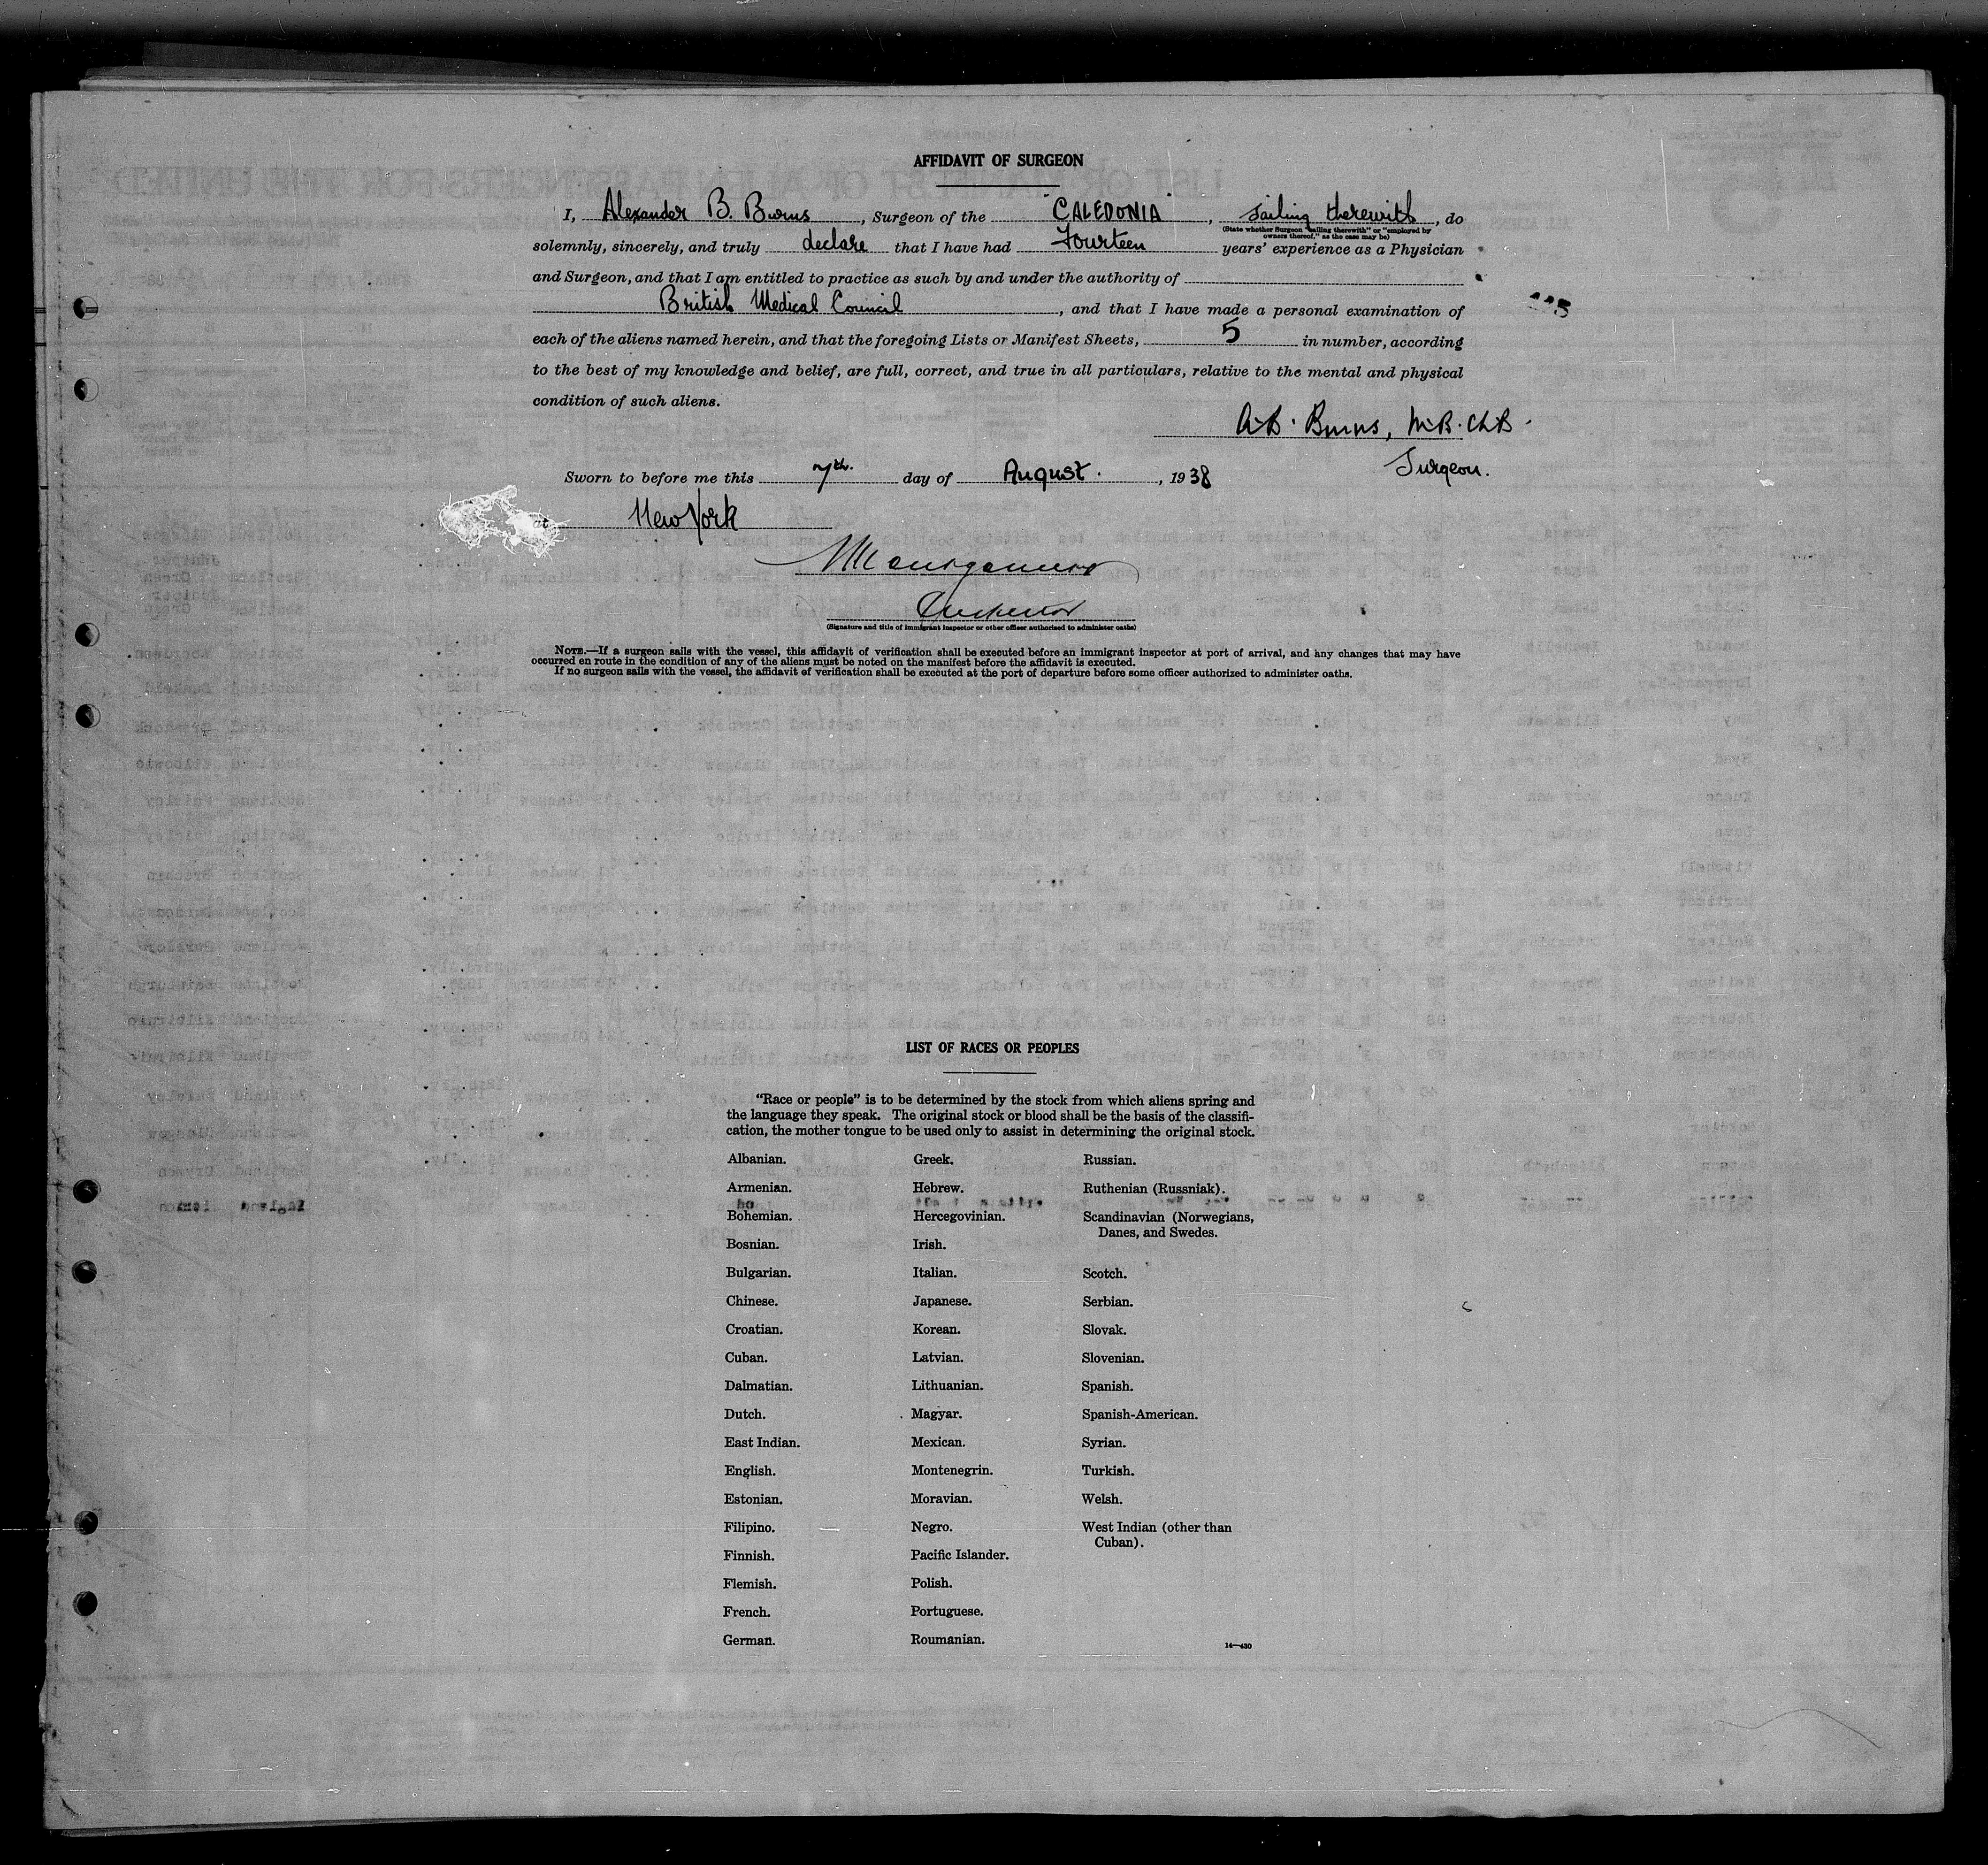 AFFIDAVIT OF SURGEON
I, Alexander B. Burns, Surgeon of the "CALEDONIA", sailing therewith, do
(State whether Surgeon "sailing therewith" or "employed by
owners thereof," as the case may be)
solemnly, sincerely, and truly declare that I have had Fourteen years' experience as a Physician
and Surgeon, and that I am entitled to practice as such by and under the authority of
British Medical Council, and that I have made a personal examination of
each of the aliens named herein, and that the foregoing Lists or Manifest Sheets, 5 in number, according
to the best of my knowledge and belief, are full, correct, and true in all particulars, relative to the mental and physical
condition of such aliens.
A.B. Burns, M.B. Ch.B.
Surgeon.
Sworn to before me this 7th. day of August., 1938
at New York
Inspector
(Signature and title of immigrant inspector or other officer authorized to administer oaths)
NOTE.—If a surgeon sails with the vessel, this affidavit of verification shall be executed before an immigrant inspector at port of arrival, and any changes that may have
occurred en route in the condition of any of the aliens must be noted on the manifest before the affidavit is executed.
If no surgeon sails with the vessel, the affidavit of verification shall be executed at the port of departure before some officer authorized to administer oaths.
LIST OF RACES OR PEOPLES
"Race or people" is to be determined by the stock from which aliens spring and
the language they speak. The original stock or blood shall be the basis of the classifi-
cation, the mother tongue to be used only to assist in determining the original stock.
Albanian.
Armenian.
Bohemian.
Bosnian.
Bulgarian.
Chinese.
Croatian.
Cuban.
Dalmatian.
Dutch.
East Indian.
English.
Estonian.
Filipino.
Finnish.
Flemish.
French.
German.
Greek.
Hebrew.
Hercegovinian.
Irish.
Italian.
Japanese.
Korean.
Latvian.
Lithuanian.
Magyar.
Mexican.
Montenegrin.
Moravian.
Negro.
Pacific Islander.
Polish.
Portuguese.
Roumanian.
Russian.
Ruthenian (Russniak).
Scandinavian (Norwegians,
Danes, and Swedes.
Scotch.
Serbian.
Slovak.
Slovenian.
Spanish.
Spanish-American.
Syrian.
Turkish.
Welsh.
West Indian (other than
Cuban).
14—430